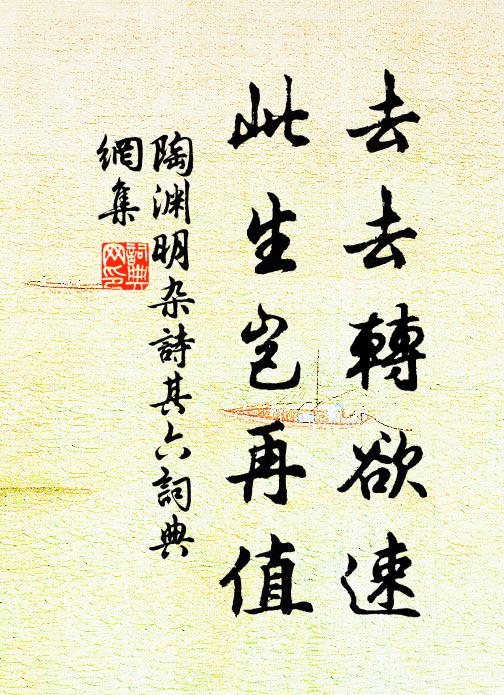 去去轉欲速
此生岂再值
陶渊明杂詩其六詞典
網集
詞典
网印